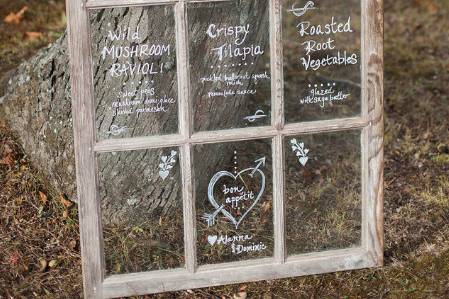 Wild
MUSHROOM
RAVIOLI
sweet peas
mushroom demi glace
shaved parmesan
Crispy
Tilapia
butternut squash
hash
sauce
Roasted
Root
Vegetables
glazed
with sage butter
bon
appétit
Alanna
& Dominic